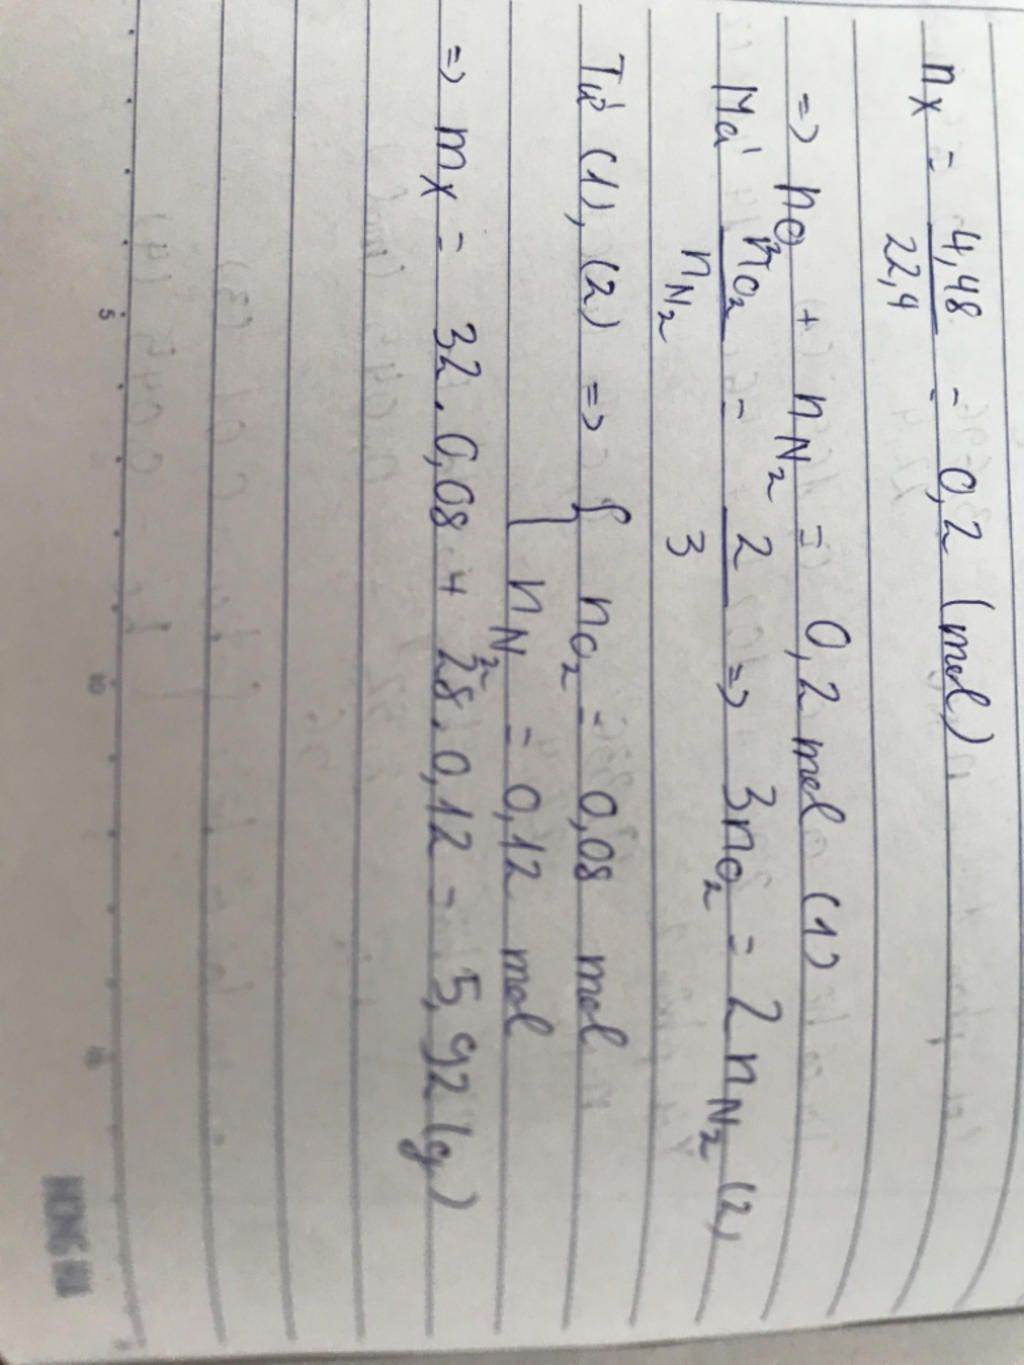 nX = 4,48 / 22,4 = 0,2 (mol)
=> nO2 + nN2 = 0,2 mol (1)
Mà nO2 / nN2 = 2 / 3 => 3nO2 = 2nN2 (2)
Từ (1), (2) => { nO2 = 0,08 mol
nN2 = 0,12 mol
=> mX = 32.0,08 + 28.0,12 = 5,92 (g)
5 10 15
HONG HA